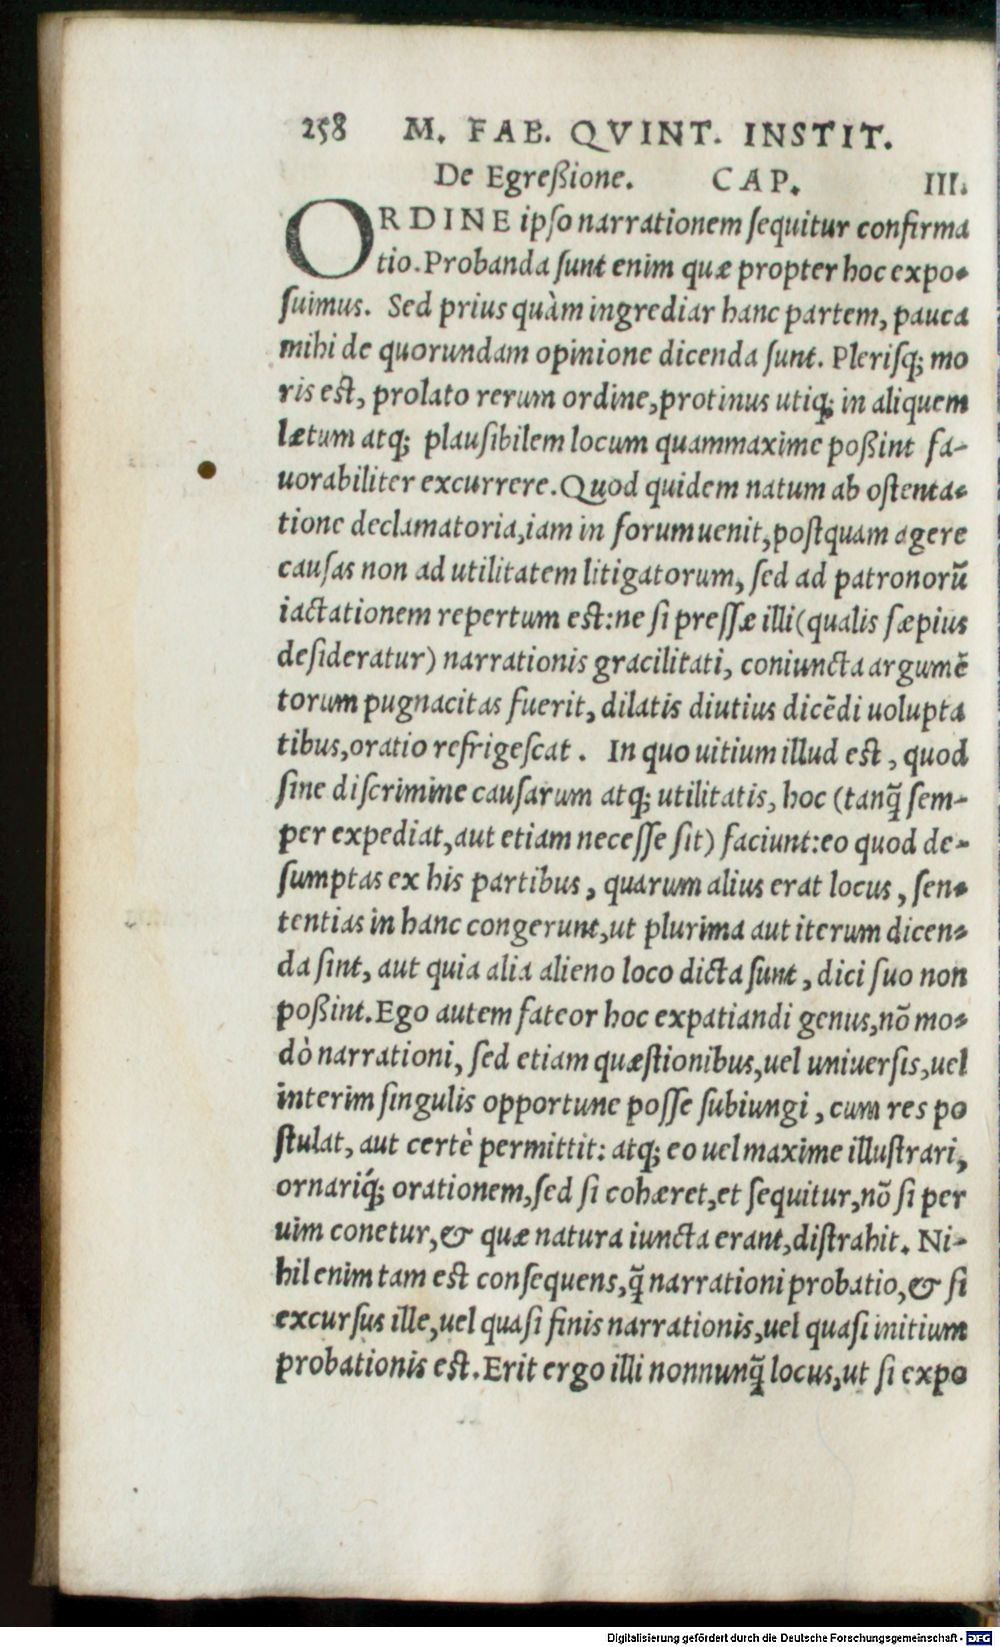 258 M. FAB. QVINT. INSTIT.
De Egreßione. CAP. III.
ORDINE ipſo narrationem ſequitur confirma
tio. Probanda ſunt enim quæ propter hoc expo-
ſuimus. Sed prius quàm ingrediar hanc partem, pauca
mihi de quorundam opinione dicenda ſunt. Pleriſq; mo
ris eſt, prolato rerum ordine, protinus utiq; in aliquem
lætum atq; plauſibilem locum quammaxime poßint fa-
uorabiliter excurrere. Quod quidem natum ab oſtenta-
tione declamatoria, iam in forum uenit, poſtquam agere
cauſas non ad utilitatem litigatorum, ſed ad patronorū
iactationem repertum eſt: ne ſi preſſæ illi (qualis ſæpius
deſideratur) narrationis gracilitati, coniuncta argumē
torum pugnacitas fuerit, dilatis diutius dicēdi uolupta
tibus, oratio refrigeſcat. In quo uitium illud eſt, quod
ſine diſcrimine cauſarum atq; utilitatis, hoc (tanq̃ ſem-
per expediat, aut etiam neceſſe ſit) faciunt: eo quod de-
ſumptas ex his partibus, quarum alius erat locus, ſen-
tentias in hanc congerunt, ut plurima aut iterum dicen-
da ſint, aut quia alia alieno loco dicta ſunt, dici ſuo non
poßint. Ego autem fateor hoc expatiandi genus, nō mo-
dò narrationi, ſed etiam quæſtionibus, uel uniuerſis, uel
interim ſingulis opportune poſſe ſubiungi, cum res po
ſtulat, aut certè permittit: atq; eo uel maxime illuſtrari,
ornariq́; orationem, ſed ſi cohæret, et ſequitur, nō ſi per
uim conetur, & quæ natura iuncta erant, diſtrahit. Ni-
hil enim tam eſt conſequens, q̃ narrationi probatio, & ſi
excurſus ille, uel quaſi finis narrationis, uel quaſi initium
probationis eſt. Erit ergo illi nonnunq̃ locus, ut ſi expo
Digitalisierung gefördert durch die Deutsche Forschungsgemeinschaft - DFG